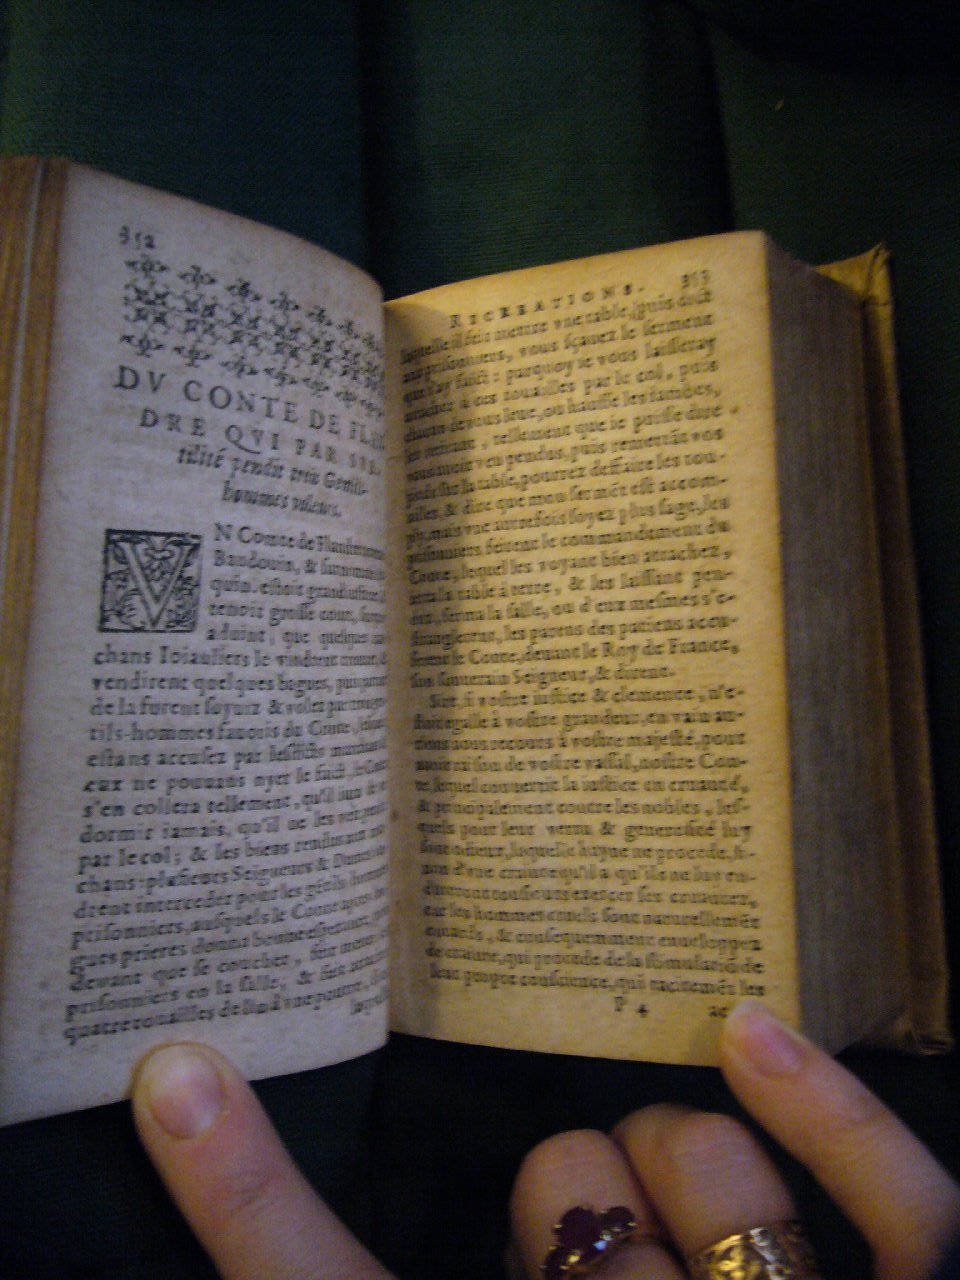 352
DV CONTE DE FLAN
DRE QVI PAR SVB-
tilité pendit trois Gentils-
hommes voleurs.
VN Comte de Flandre nommé
Baudouin, & surnommé
quin, estoit grand iusticier,
tenoit grosse cour,
aduint, que quelques
chans Ioiauliers le vindrent
vendirent quelques bagues, puis
de la furent suyuis & volez par
tils-hommes fauoris du Comte,
estans accusez par lesdicts
eux ne pouuans nyer le faict, le Comte
s'en collera tellement, qu'il iura de
dormir iamais, qu'il ne les
par le col; & les biens rendus
chans: plusieurs Seigneurs & Dames
drent interceder pour les gētils-hommes
prisonniers, ausquels le Conte apres
gues prieres donna bonne esperance,
deuant que se coucher, feit
prisonniers en la salle, & feit
quatre touailles de lin d'vne poutre,
laquelle
RECREATIONS. 353
laquelle il feit mettre vne table, puis dict
aux prisonniers, vous sçauez le serment
que i'ay faict: parquoy ie vous laisseray
attacher à ces touailles par le col, puis
chacun de vous leue, ou hausse les iambes,
les remuant, tellement que ie puisse dire
vous auoir veu pendus, puis remettās vos
pieds sur la table, pourrez deffaire les tou-
ailles, & dire que mon sermēt est accom-
ply, mais vne autrefois soyez plus sage, les
prisonniers feirent le commandement du
Conte, lequel les voyant bien attachez,
ietta la table à terre, & les laissant pen-
dus, ferma la salle, ou d'eux mesmes s'e-
stranglerent, les parens des patiens accu-
serent le Conte, deuant le Roy de France,
son souuerain Seigneur, & dirent.
Sire, si vostre iustice & clemence, n'e-
stoit egalle à vostre grandeur, en vain au-
rions nous recours à vostre maiesté, pour
auoir raison de vostre vassal, nostre Con-
te, lequel conuertit la iustice en cruauté,
& principalement contre les nobles, les-
quels pour leur vertu & generosité luy
sont odieux, laquelle hayne ne procede, si-
non d'vne crainte qu'il a qu'ils ne luy en-
durent tousiours exercer ses cruautez,
car les hommes cruels sont naturellemēt
couards, & consequemment enueloppez
de crainte, qui procede de la stimulatiō de
leur propre conscience, qui
les
P 4